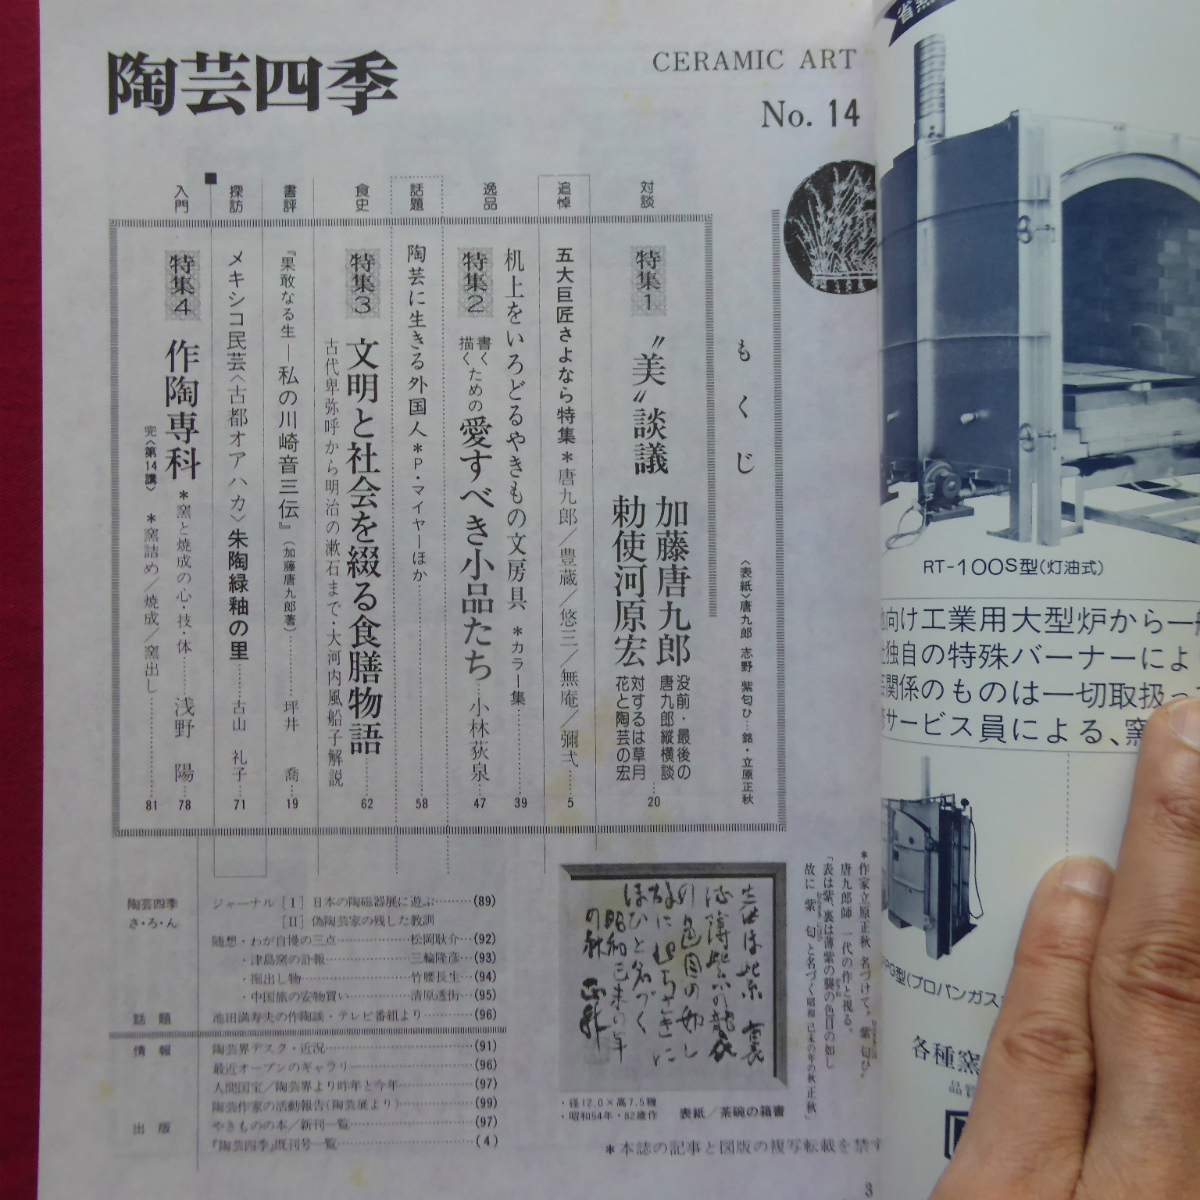 陶芸四季
CERAMIC ART
No. 14
もくじ
〈表紙〉唐九郎 志野 紫匂ひ…銘・立原正秋
対談
特集1
〝美〟談議
加藤唐九郎
勅使河原宏
没前・最後の
唐九郎縦横談
対するは草月
花と陶芸の宏
20
追悼
五大巨匠さよなら特集＊唐九郎／豊蔵／悠三／無庵／彌弌
5
逸品
机上をいろどるやきもの文房具 ＊カラー集
39
特集2
書くための
描く
愛すべき小品たち
小林荻泉
47
話題
陶芸に生きる外国人＊P・マイヤーほか
58
食史
特集3
文明と社会を綴る食膳物語
古代卑弥呼から明治の漱石まで・大河内風船子解説
62
書評
『果敢なる生―私の川崎音三伝』(加藤唐九郎著)
坪井 喬
19
探訪
メキシコ民芸〈古都オアハカ〉朱陶緑釉の里
古山 礼子
71
入門
特集4
作陶専科
＊窯と焼成の心・技・体
浅野 陽
78
完〈第14講〉 ＊窯詰め／焼成／窯出し
81
陶芸四季
さ・ろ・ん
ジャーナル [Ⅰ] 日本の陶磁器展に遊ぶ………(89)
[Ⅱ] 偽陶芸家の残した教訓
随想・わが自慢の三点……………松岡耿介…(92)
・津島窯の訃報………………三輪隆彦…(93)
・掘出し物……………………竹腰長生…(94)
・中国旅の安物買い…………清原透街…(95)
話題
池田満寿夫の作陶談・テレビ番組より………(96)
情報
陶芸界デスク・近況……………(91)
最近オープンのギャラリ………(96)
人間国宝／陶芸界より昨年と今年………(97)
陶芸作家の活動報告(陶芸展より)………(99)
出版
やきものの本／新刊一覧………(97)
『陶芸四季』既刊号一覧………(4)
・径12.0×高7.5糎
・昭和54年・82歳作
表紙／茶碗の箱書
＊作家立原正秋 名づけて。紫匂ひ
唐九郎師 一代の作と視る。
「表は紫、裏は薄紫の襲の色目の如し
故に 紫匂と名づく 昭和己未の年の秋正秋」
＊本誌の記事と図版の複写転載を禁ず
3
RT-100S型(灯油式)
向け工業用大型炉から一般
独自の特殊バーナーによ
関係のものは一切取扱っ
サービス員による、窯
PG型(プロパンガス
各種窯